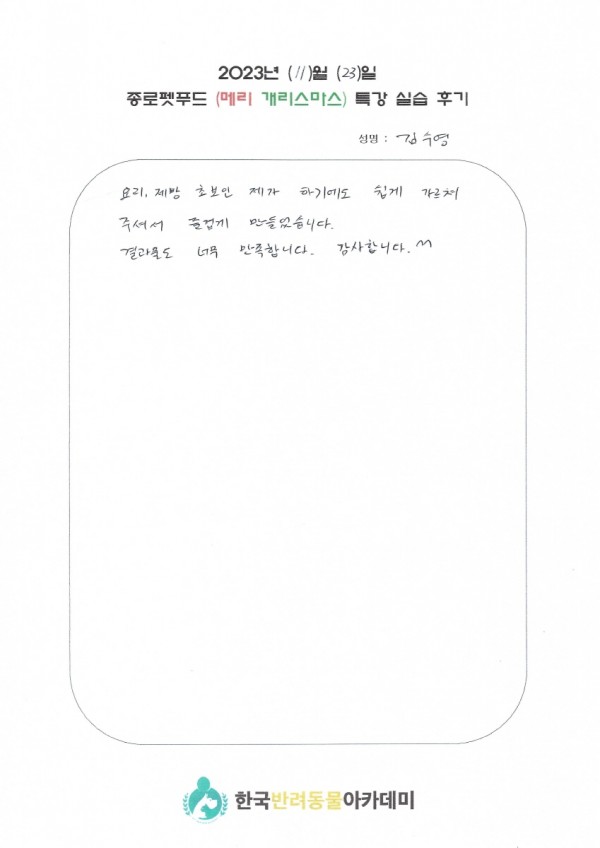 2023년 (11)월 (23)일
종로펫푸드 (메리 개리스마스) 특강 실습 후기
성명 : 김수영
요리, 제빵 초보인 제가 하기에도 쉽게 가르쳐
주셔서 즐겁게 만들었습니다.
결과물도 너무 만족합니다. 감사합니다. ^^
한국반려동물아카데미